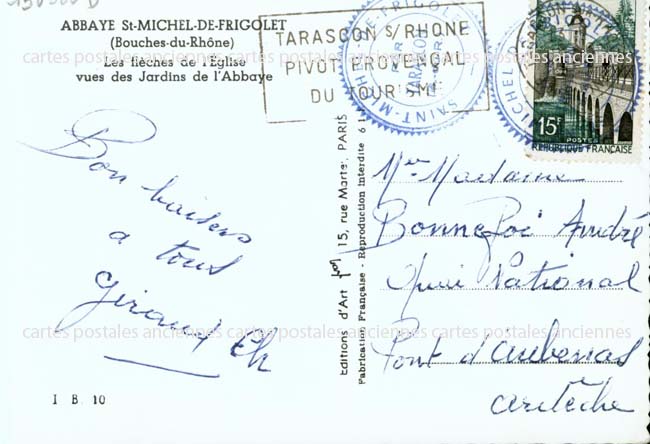 ABBAYE St-MICHEL-DE-FRIGOLET
(Bouches-du-Rhône)
Les flèches de l'Eglise
vues des Jardins de l'Abbaye
TARASCON S/ RHONE
PIVOT PROVENÇAL
DU TOURISME
SAINT-MICHEL
TARASCON
15F
POSTES
REPUBLIQUE FRANÇAISE
Bon baisers
a tous
Giraud Ch
I B 10
Editions d'Art Yvon, 15, rue Martel, PARIS
Fabrication Française - Reproduction Interdite
Mr Madame
Bonnefoi André
Quai National
Pont d'aubenas
ardèche
cartes postales anciennes cartes postales anciennes